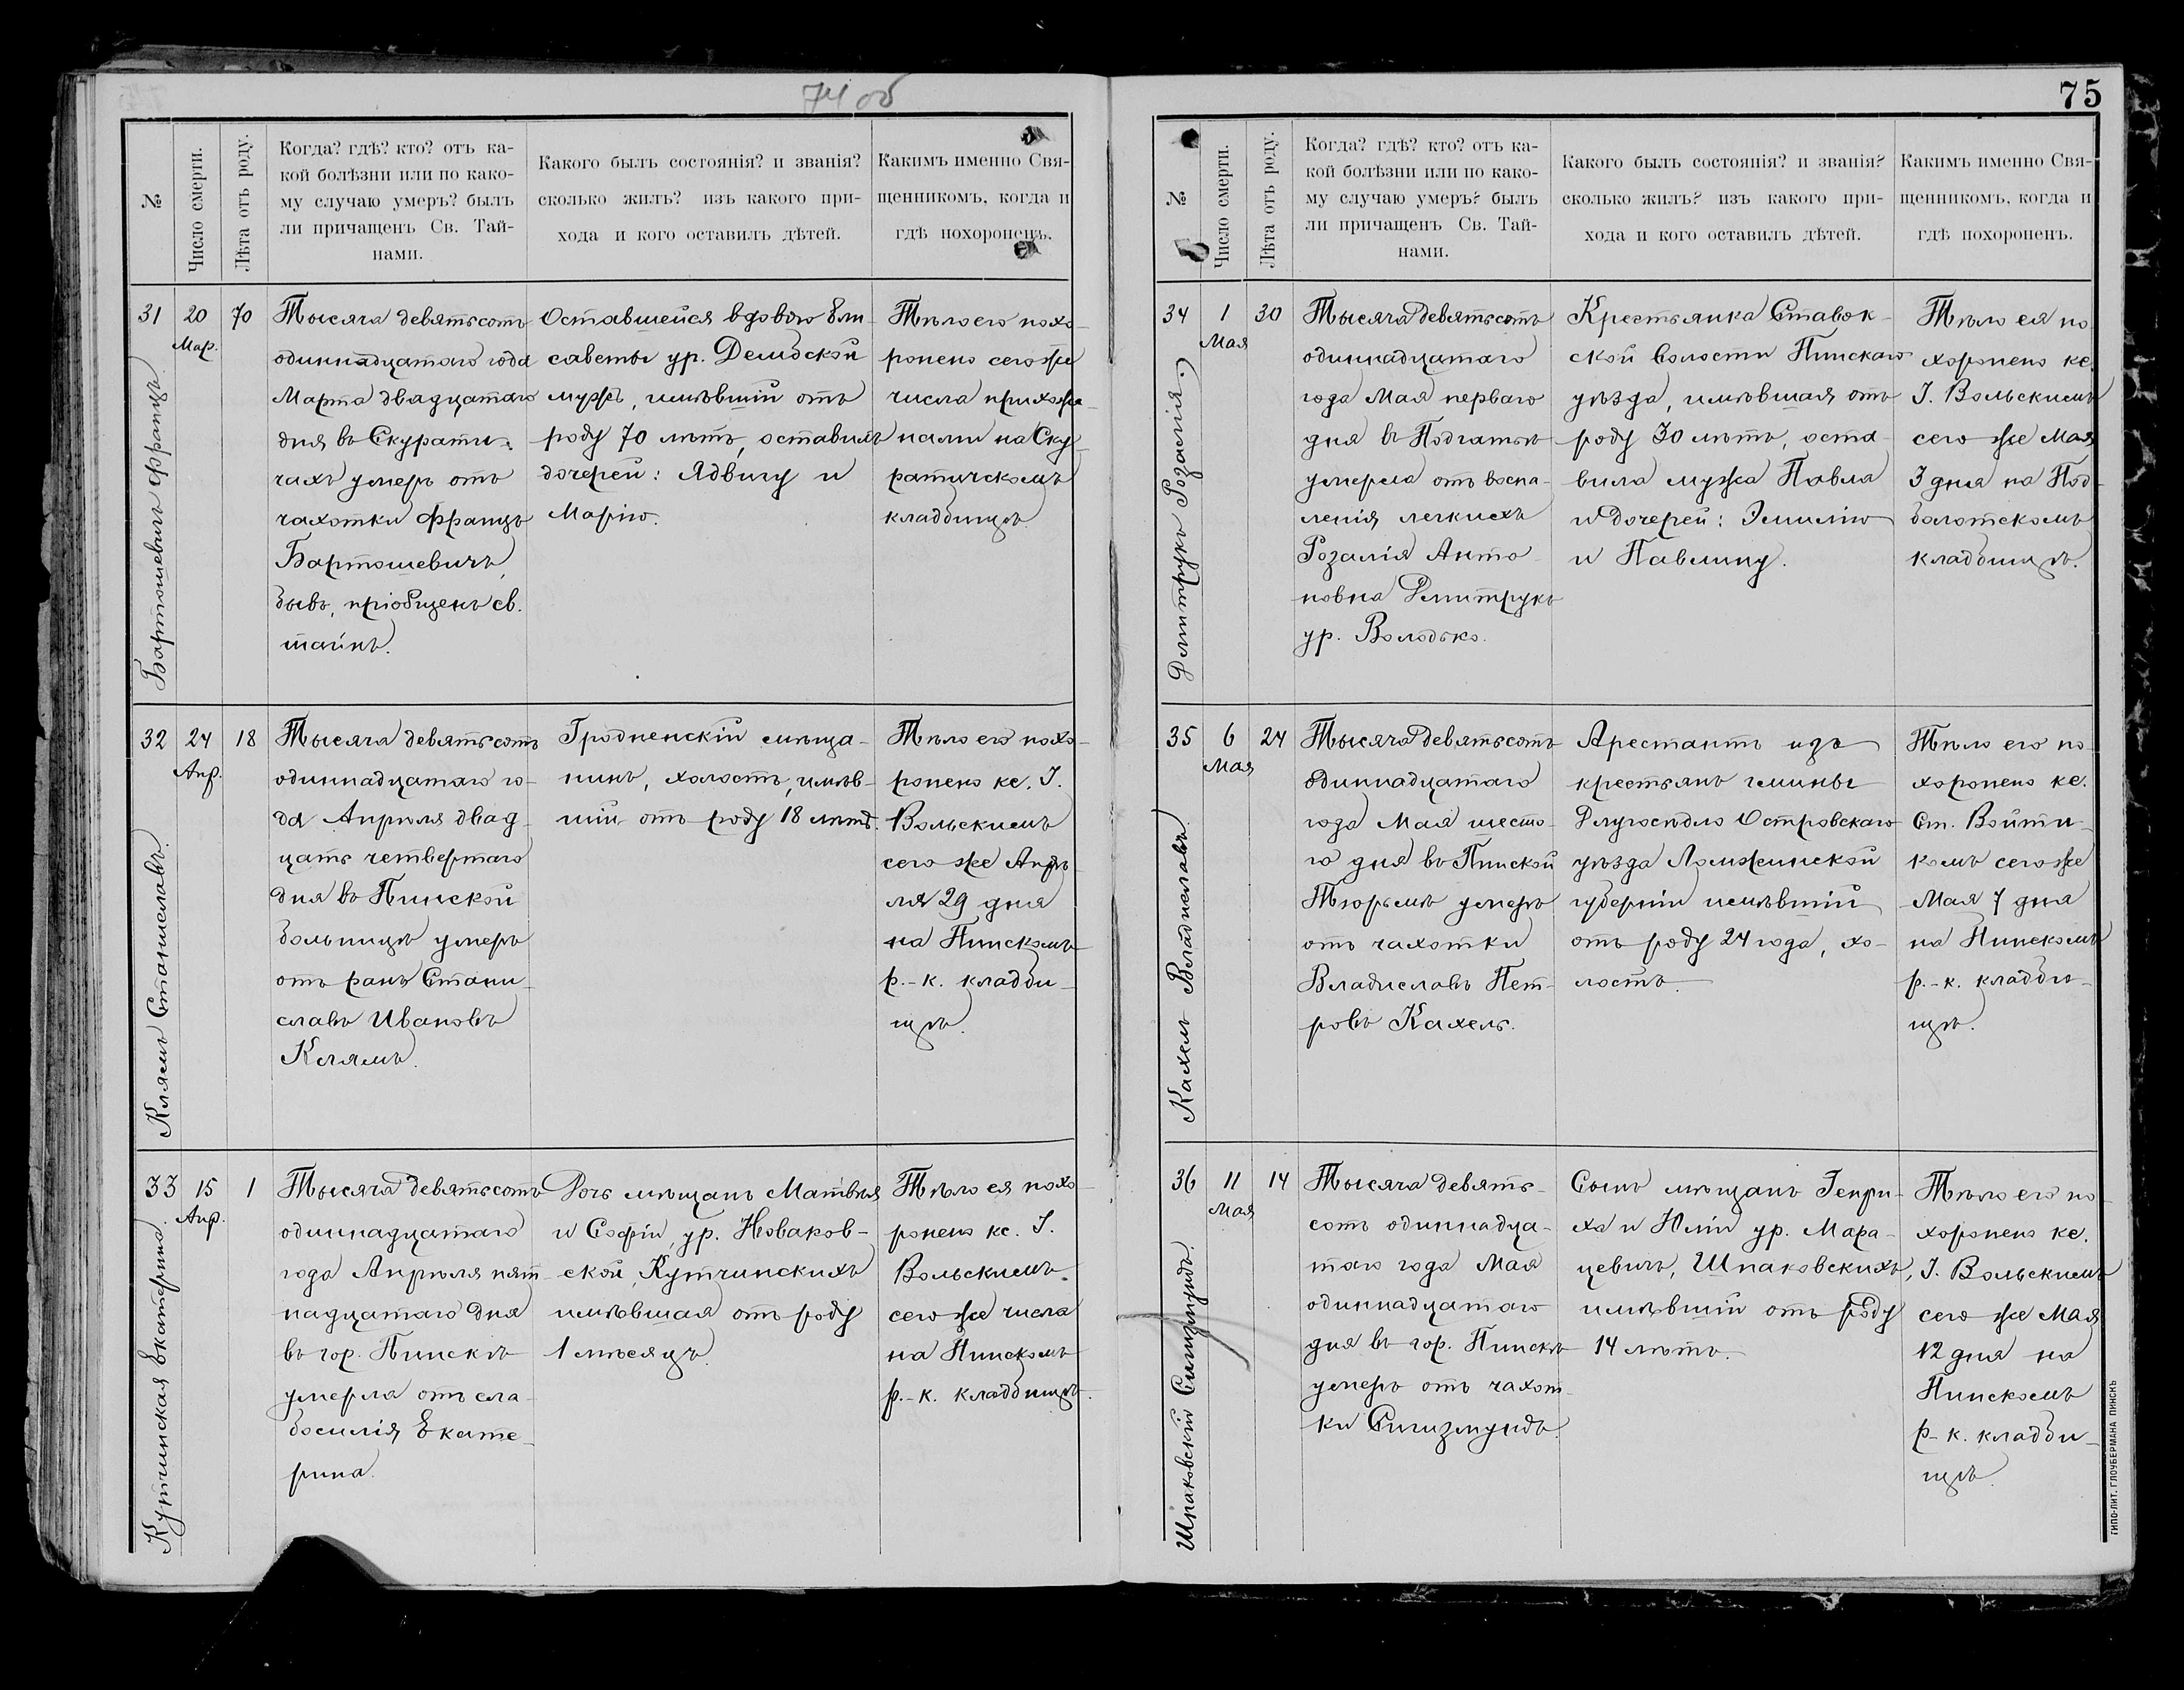 74 об
№
Число смерти.
Лѣта отъ роду.
Когда? гдѣ? кто? отъ ка-
кой болѣзни или по како-
му случаю умеръ? былъ
ли причащенъ Св. Тай-
нами.
Какого былъ состоянія? и званія?
сколько жилъ? изъ какого при-
хода и кого оставилъ дѣтей.
Какимъ именно Свя-
щенникомъ, когда и
гдѣ похороненъ.
31
20
Мар.
70
Бартошевичъ Францъ.
Тысяча девятьсотъ
одиннадцатого года
Марта двадцатаго
дня въ Скурати-
чахъ умеръ отъ
чахотки Францъ
Бартошевичъ,
бывъ пріобщенъ св.
тайнъ.
Оставшейся вдовою Ели-
саветы ур. Дембской
мужъ, имѣвшій отъ
роду 70 лѣтъ, оставилъ
дочерей: Ядвигу и
Марію.
Тѣло его похо-
ронено сего же
числа прихожа-
нами на Ску-
ратичскомъ
кладбищѣ.
32
24
Апр.
18
Клямъ Станиславъ.
Тысяча девятьсотъ
одиннадцатаго го-
да Апрѣля двад-
цать четвертаго
дня въ Пинской
больницѣ умеръ
отъ ранъ Стани-
славъ Ивановъ
Клямъ.
Гродненскій мѣща-
нинъ, холостъ, имѣв-
шій отъ роду 18 лѣтъ.
Тѣло его похо-
ронено кс. І.
Вольскимъ
сего же Апрѣ-
ля 29 дня
на Пинскомъ
р.-к. кладби-
щѣ.
33
15
Апр.
1
Кутчинская Екатерина.
Тысяча девятьсотъ
одиннадцатаго
года Апрѣля пят-
надцатаго дня
въ гор. Пинскѣ
умерла отъ сла-
босилія Екате-
рина.
Дочь мѣщанъ Матвѣя
и Софіи, ур. Новаков-
ской, Кутчинскихъ
имѣвшая отъ роду
1 мѣсяцъ.
Тѣло ея похо-
ронено кс. І.
Вольскимъ
сего же числа
на Пинскомъ
р.-к. кладбищѣ.
75
№
Число смерти.
Лѣта отъ роду.
Когда? гдѣ? кто? отъ ка-
кой болѣзни или по како-
му случаю умеръ? былъ
ли причащенъ Св. Тай-
нами.
Какого былъ состоянія? и званія?
сколько жилъ? изъ какого при-
хода и кого оставилъ дѣтей.
Какимъ именно Свя-
щенникомъ, когда и
гдѣ похороненъ.
34
1
Мая
30
Дмитрукъ Розалія.
Тысяча девятьсотъ
одиннадцатаго
года Мая перваго
дня въ
умерла отъ воспа-
ленія легкихъ
Розалія Анто-
новна Дмитрукъ
ур. Володько.
Крестьянка Ставок-
ской волости Пинскаго
уѣзда, имѣвшая отъ
роду 30 лѣтъ, оста-
вила мужа Павла
и дочерей: Эмилію
и Павлину.
Тѣло ея по-
хоронено кс.
І. Вольскимъ
сего же Мая
3 дня на Под-
болотскомъ
кладбищѣ.
35
6
Мая
24
Кахель Владиславъ
Тысяча девятьсотъ
одиннадцатаго
года Мая шесто-
го дня въ Пинской
Тюрьмѣ умеръ
отъ чахотки
Владиславъ Пет-
ровъ Кахель.
Арестантъ изъ
крестьянъ гмины
Длугоседло Островскаго
уѣзда Ломжинской
губерніи имѣвшій
отъ роду 24 года, хо-
лостъ.
Тѣло его по-
хоронено кс.
Ст. Войти-
комъ сего же
Мая 7 дня
на Пинскомъ
р.-к. кладби-
щѣ.
36
11
Мая
14
Шпаковскій Сигизмундъ.
Тысяча девять-
сотъ одиннадца-
таго года Мая
одиннадцатаго
дня въ гор. Пинскѣ
умеръ отъ чахот-
ки Сигизмундъ.
Сынъ мѣщанъ Генри-
ха и Юліи ур. Мара-
цевичъ, Шпаковскихъ,
имѣвшій отъ роду
14 лѣтъ.
Тѣло его по-
хоронено кс.
І. Вольскимъ
сего же Мая
12 дня на
Пинскомъ
р-к. кладби-
щѣ.
ТИПО-ЛИТ. ГЛОУБЕРМАНА ПИНСКЪ